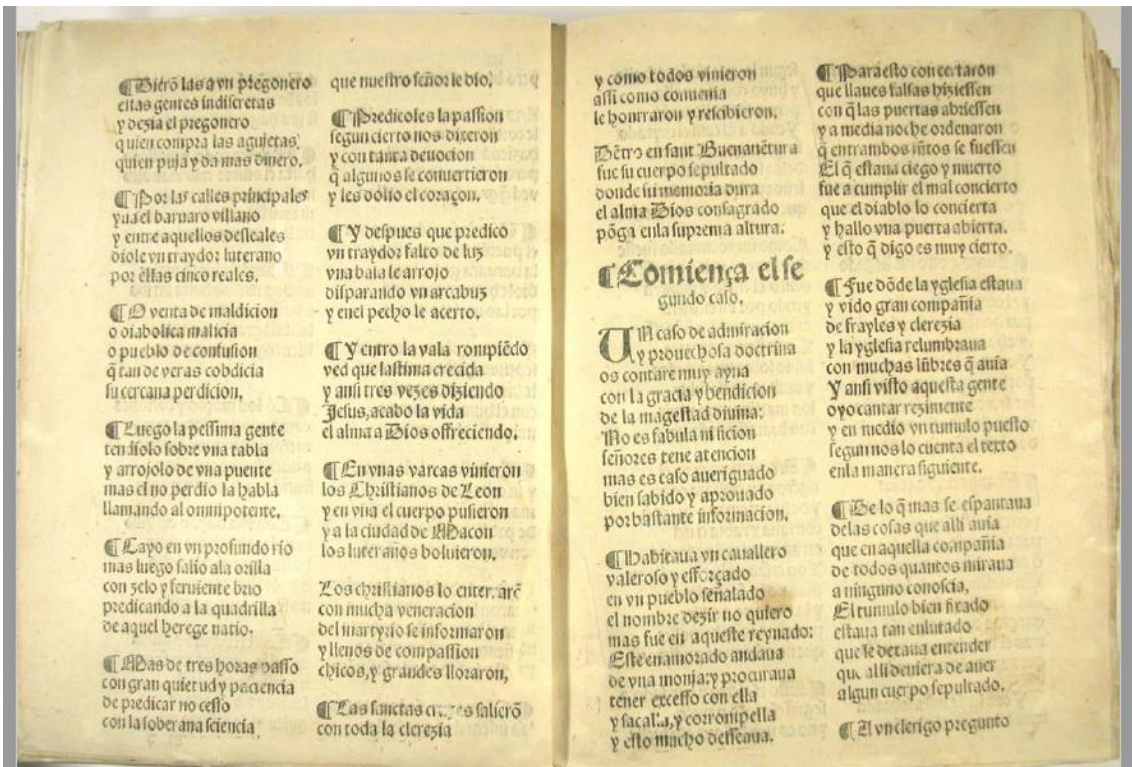 ¶Dierõ las a vn pregonero
estas gentes indiscretas
y dezia el pregonero
quien compra las agujetas,
quien puja y da mas dinero.
¶Por las calles principales
yua el baruaro villano
y entre aquellos desleales
diole vn traydor luterano
por ellas cinco reales.
¶O venta de maldicion
o diabolica malicia
o pueblo de confusion
q̃ tan de veras cobdicia
su cercana perdicion.
¶Luego la pessima gente
tendiolo sobre vna tabla
y arrojolo de vna puente
mas el no perdio la habla
llamando al omnipotente.
¶Cayo en vn profundo rio
mas luego salio ala orilla
con zelo y feruiente brio
predicando a la quadrilla
de aquel herege natio.
¶Mas de tres horas passo
con gran quietud y paciencia
de predicar no cesso
con la soberana sciencia
que nuestro señor le dio.
¶Predicoles la passion
segun cierto nos dixeron
y con tanta deuocion
q̃ algunos se conuertieron
y les dolio el coraçon.
¶Y despues que predico
vn traydor falto de luz
vna bala le arrojo
disparando vn arcabuz
y enel pecho le acerto.
¶Y entro la vala rompiẽdo
ved que lastima crecida
y ansi tres vezes diziendo
Jesus, acabo la vida
el alma a Dios offreciendo.
¶En vnas varcas vinieron
los Christianos de Leon
y en vna el cuerpo pusieron
y a la ciudad de Macon
los luteranos boluieron.
Los christianos lo enterrarõ
con mucha veneracion
del martyrio se informaron
y llenos de compassion
chicos, y grandes lloraron,
¶Las sanctas cruzes salierõ
con toda la clerezia
y como todos vinieron
assi como conuenia
le honrraron y rescibieron.
Dẽtro en sant Buenauẽtura
fue su cuerpo sepultado
donde su memoria dura
el alma Dios consagrado
põga enla suprema altura.
¶Comiença el se
gundo caso.
UN caso de admiracion
y prouechosa doctrina
os contare muy ayna
con la gracia y bendicion
de la magestad diuina:
No es fabula ni ficion
señores tene atencion
mas es caso aueriguado
bien sabido y aprouado
por bastante informacion.
¶Habitaua vn cauallero
valeroso y esforçado
en vn pueblo señalado
el nombre dezir no quiero
mas fue en aqueste reynado:
Este enamorado andaua
de vna monja: y procuraua
tener excesso con ella
y sacalla, y corrompella
y esto mucho desseaua.
¶Para esto concertaron
que llaues falsas hiziessen
con q̃ las puertas abriessen
y a media noche ordenaron
q̃ entrambos jũtos se fuessen
El q̃ estaua ciego y muerto
fue a cumplir el mal concierto
que el diablo lo concierta
y hallo vna puerta abierta.
y esto q̃ digo es muy cierto.
¶Fue dõde la yglesia estaua
y vido gran compañia
de frayles y clerezia
y la yglesia relumbraua
con muchas lũbres q̃ auia
Y ansi visto aquesta gente
oyo cantar reziamente
y en medio vn tumulo puesto
segun nos lo cuenta el texto
enla manera siguiente.
¶De lo q̃ mas se espantaua
delas cosas que alli auia
que en aquella compañia
de todos quantos miraua
a ninguno conoscia,
El tumulo bien fixado
estaua tan enlutado
que se dexaua entender
que alli deuiera de auer
algun cuerpo sepultado.
¶A vn clerigo pregunto